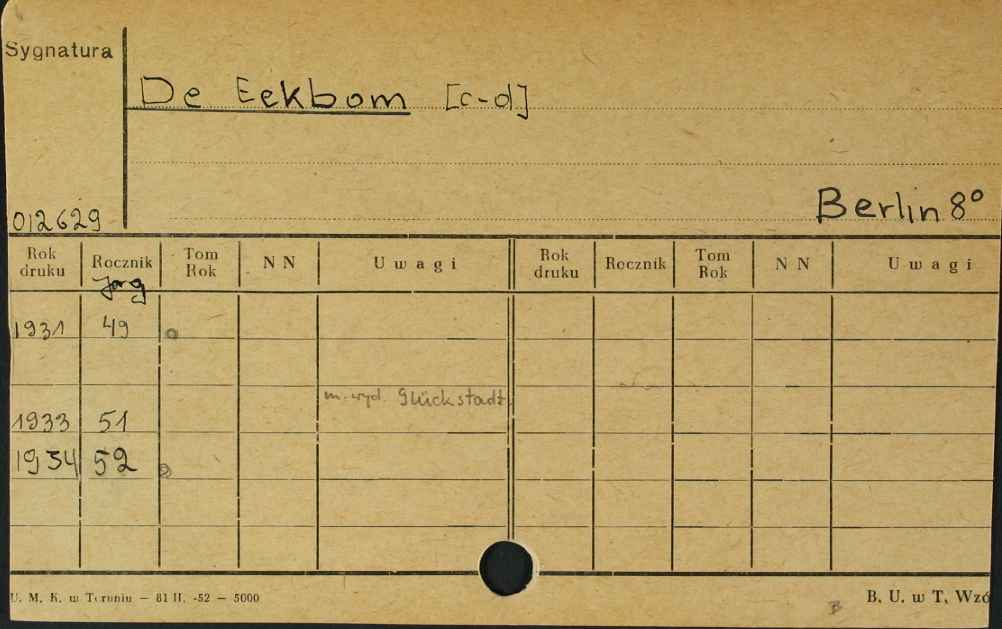 Sygnatura
De Eekbom [c-d]
Berlin 8°
012629
Rok druku Rocznik Tom Rok N N Uwagi Rok druku Rocznik Tom Rok N N Uwagi
Jarg
1931 49
m. wyd. Glückstadt
1933 51
1934 52
U. M. K. w Toruniu — 81 II. -52 — 5000
B. U. w T, Wzó
B